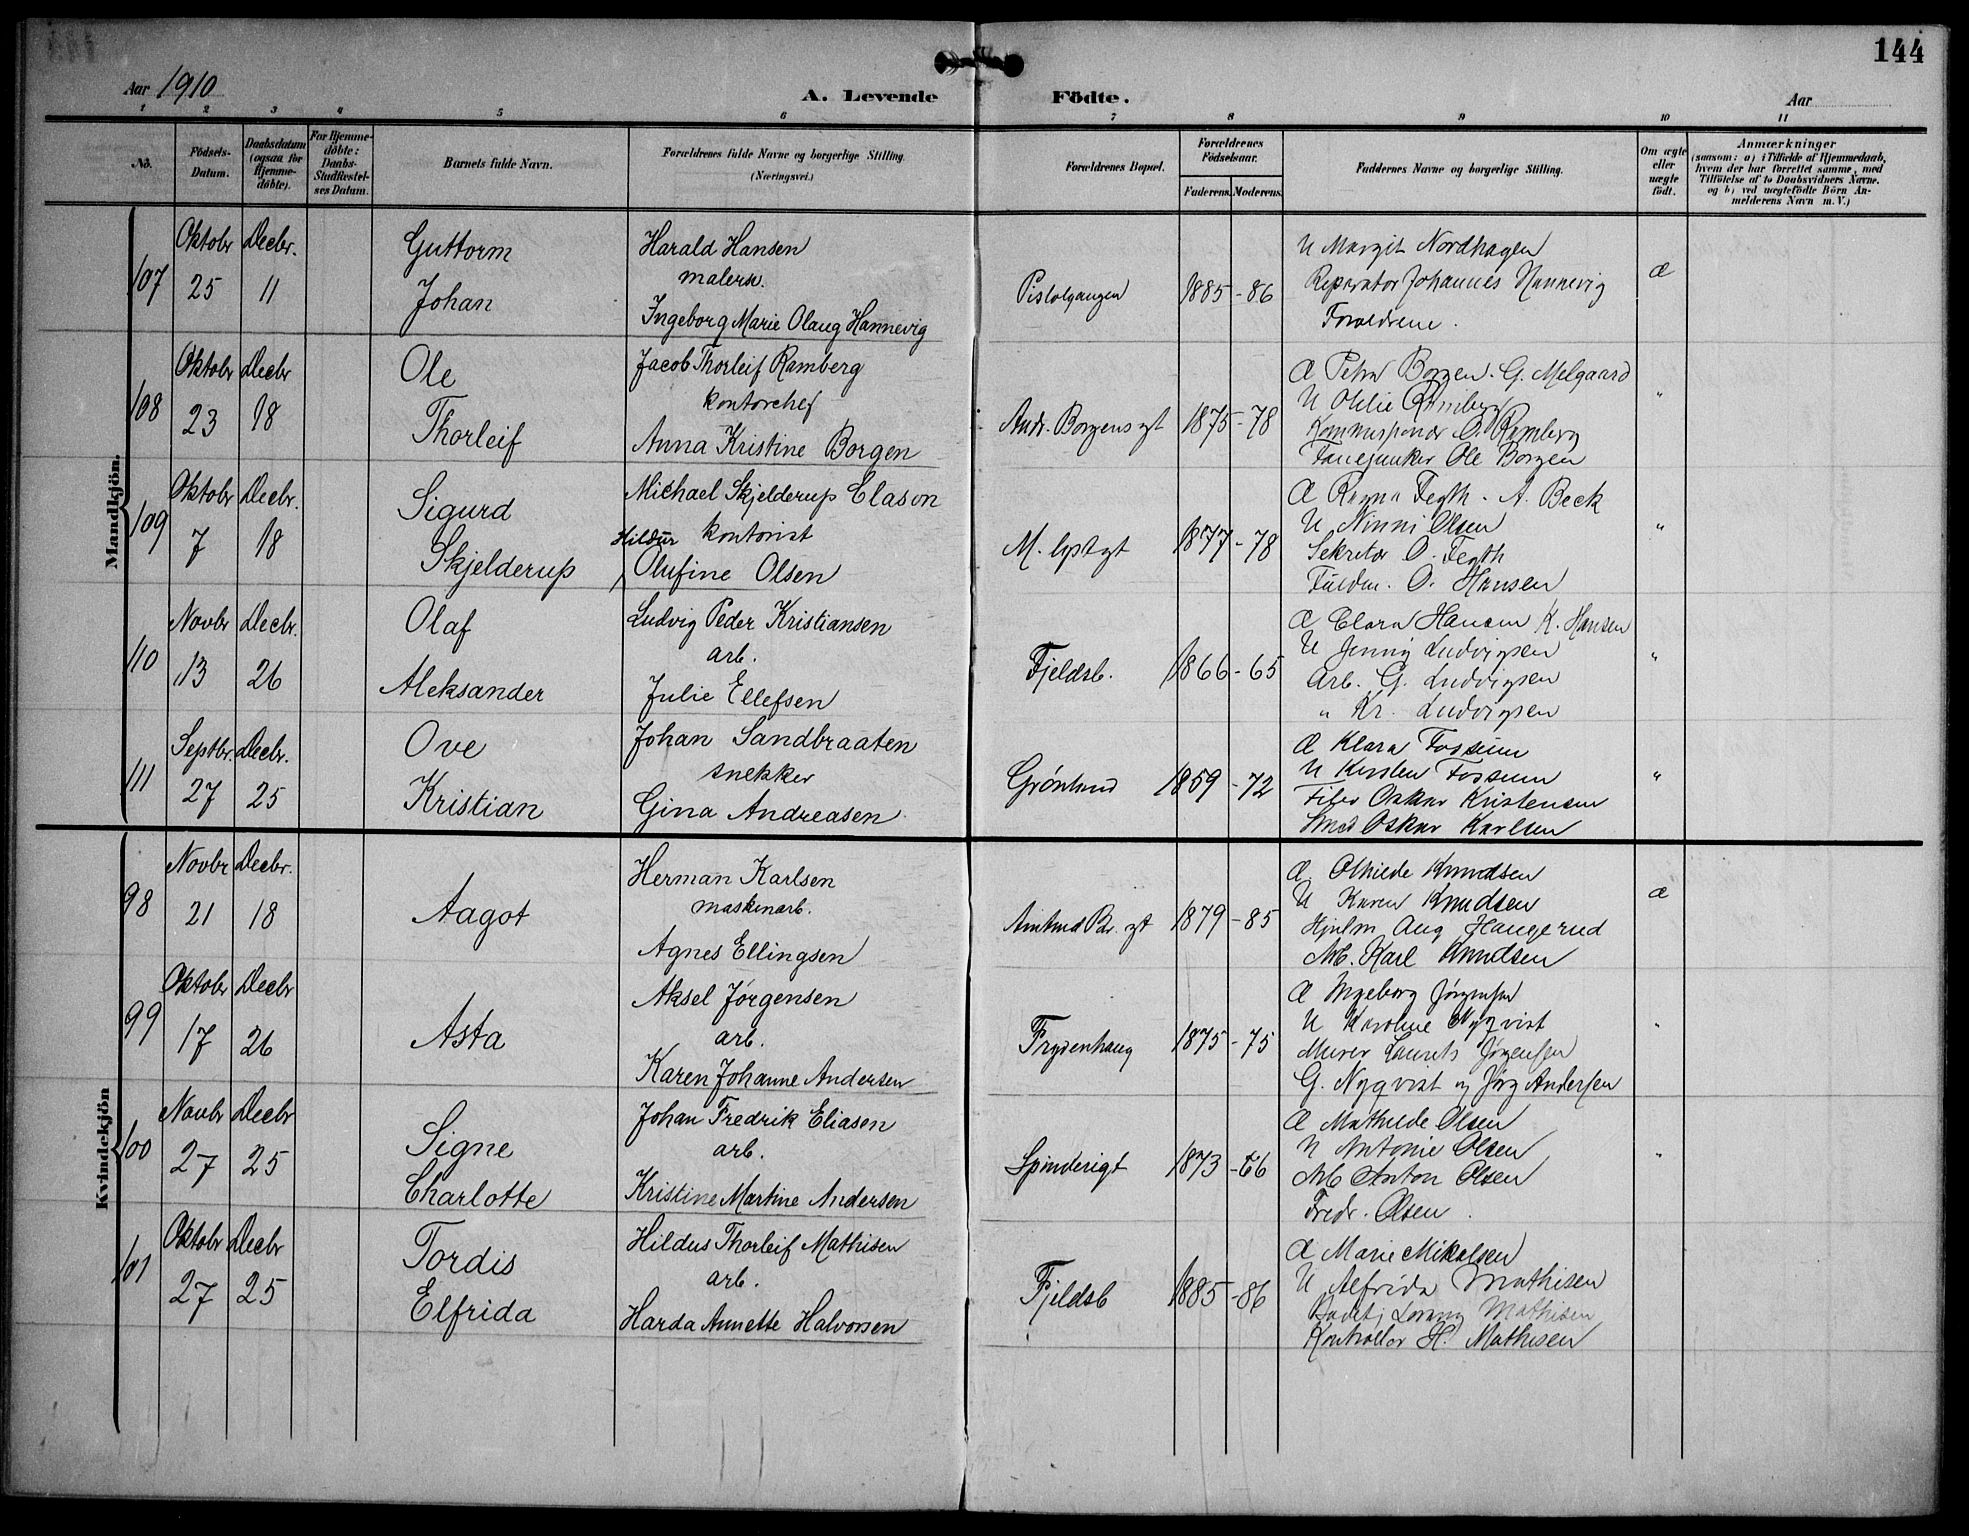 144
Aar 1910
A. Levende Födte.
Aar
1 2 3 4 5 6 7 8 9 10 11
No.
Födsels-Datum.
Daabsdatum (ogsaa for Hjemmedøbte).
For Hjemmedöbte: Daabs-Stadfæstelses Datum.
Barnets fulde Navn.
Forældrenes fulde Navne og borgerlige Stilling. (Næringsvei.)
Forældrenes Bopæl.
Forældrenes Födselsaar.
Faderens. Moderens.
Faddernes Navne og borgerlige Stilling.
Om ægte eller uægte födt.
Anmærkninger
(saasom: a) i Tilfælde af Hjemmedaab, hvem der har forrettet samme, med Tilföielse af to Daabsvidners Navne, og b) ved uægtefödte Börn Anmelderens Navn m. V.)
Mandkjön.
107 Oktobr 25 Decbr. 11
Guttorm
Johan
Harald Hansen
malersv.
Ingeborg Marie Olaug Hannevig
Pistolgangen 1885 - 86
U Margit Nordhagen
Reparatør Johannes Hannevig
Forældrene.
Æ
108 Oktobr 23 Decbr 18
Ole
Thorleif
Jacob Thorleif Ramberg
kontorchef
Anna Kristine Borgen
Andr. Borgens gt 1875 - 78
Æ Petra Borgen. G. Melgaard
U Othlie Ramberg
O. Ramberg
Fanejunker Ole Borgen
"
109 Oktobr 7 Decbr. 18
Sigurd
Skjelderup
Michael Skjelderup Clason
kontorist
Hildur Olufine Olsen
M. lystgt 1877 - 78
Æ Ragna Fegth. A. Beck
U Ninni Olsen
Sekretær O. Fegth
O. Hansen
"
110 Novbr 13 Decbr. 26
Olaf
Aleksander
Ludvig Peder Kristiansen
arb.
Julie Ellefsen
Fjeldsb. 1866 - 65
Æ Clara Hansen K. Hansen
U Jenny Ludvigsen
Arb. G. Ludvigsen
" Kr. Ludvigsen
"
111 Septbr. 27 Decbr. 25
Ove
Kristian
Johan Sandbraaten
snekker
Gina Andreasen
Grønlund 1859 - 72
Æ Klara Fossum
U Kirsten Fossum
Filer Oskar Kristensen
Smed Oskar Karlsen
"
Kvindekjön
98 Novbr 21 Decbr. 18
Aagot
Herman Karlsen
maskinarb.
Agnes Ellingsen
Amtmd Bl. gt 1879 - 85
Æ Othilde Knudsen
U Karen Knudsen
Hjulm Aug Haugerud
Mb. Karl Knudsen
Æ
99 Oktobr 17 Decbr 26
Asta
Aksel Jørgensen
arb.
Karen Johanne Andersen
Frydenhaug 1875 - 75
Æ Ingeborg Jørgensen
U Karoline Nyqvist
Murer Laurits Jørgensen
G. Nyqvist og Jørg Andersen
"
100 Novbr 27 Decbr 25
Signe
Charlotte
Johan Fredrik Eliasen
arb.
Kristine Martine Andersen
Spinderigt 1873 - 66
Æ Mathilde Olsen
U Antonie Olsen
Mb Anton Olsen
Fredr. Olsen.
"
101 Oktobr 27 Decbr 25
Tordis
Elfrida
Hildus Thorleif Mathisen
arb.
Harda Annette Halvorsen
Fjeldsb 1885 - 86
Æ Marie Mikalsen
U Alfrida Mathisen
Mathisen
Kontrollør H. Mathisen